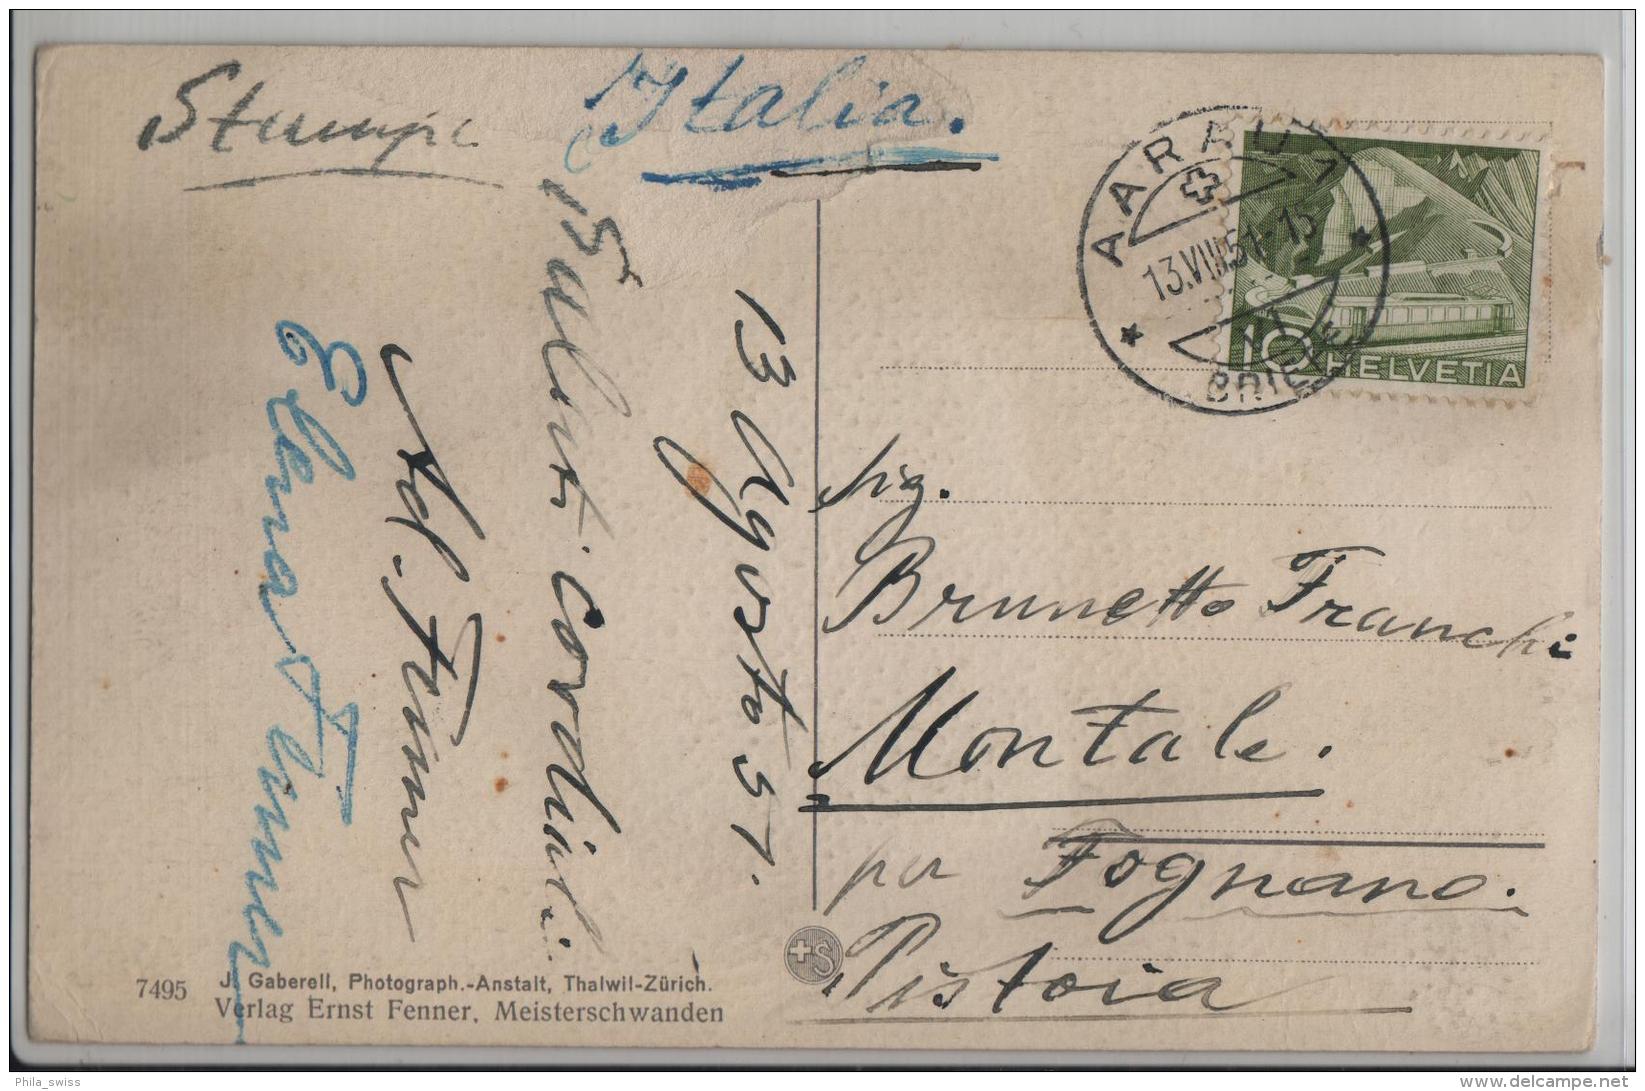 Stampe
Italia.
AARAU 1
13.VIII.51-15
BRIEFE
10
HELVETIA
13 Agosto 51.
5 Saluti cordiali.
Ad. Fummer
Elena Fummer
Sig.
Brunetto Franchi
Montale.
per Fognano.
Pistoia
+S
7495
J. Gaberell, Photograph.-Anstalt, Thalwil-Zürich.
Verlag Ernst Fenner, Meisterschwanden
Phila_swiss
www.delcampe.net